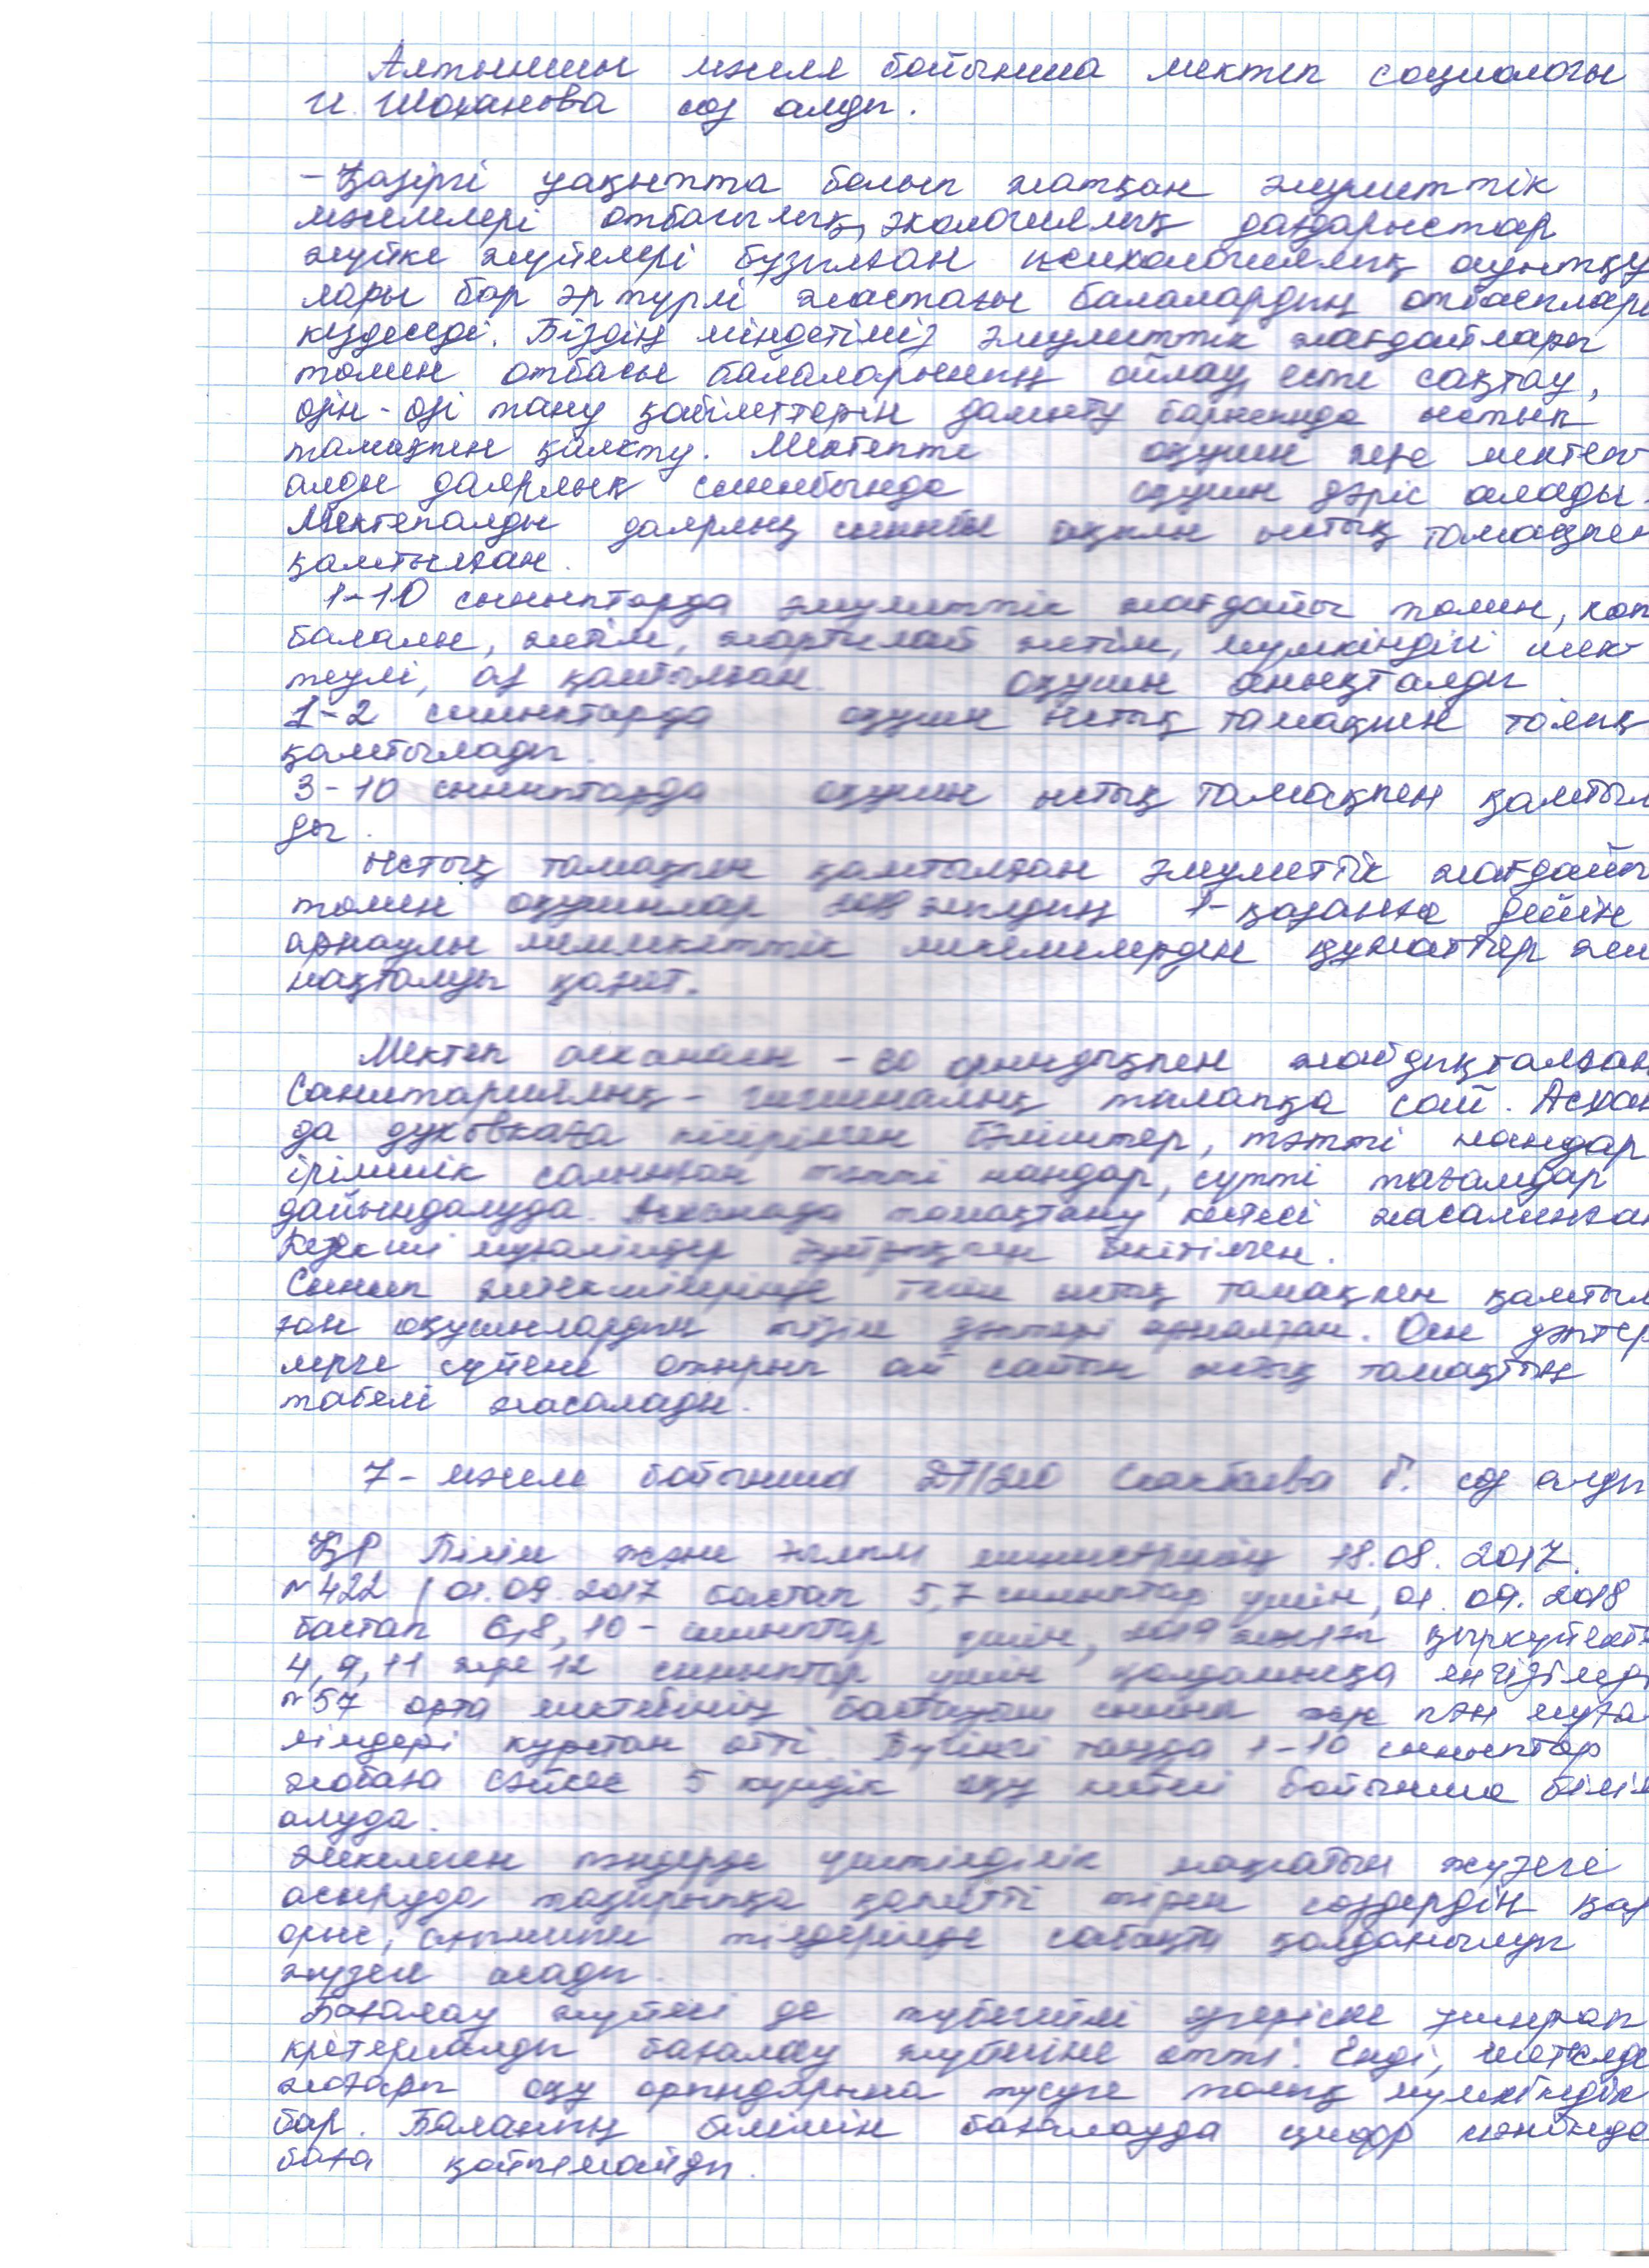 Алтыншы мәселе бойынша мектеп социологы
И. Шоханова сөз алды.
– Қазіргі уақытта болып жатқан әлуметтік
мәселелері отбасылық, экологиялық дағдарыстар
жүйке жүйелері бұзылған психологиялық ауытқу
лары бар әр түрлі жастағы балалардың отбасылары
кездеседі. Біздің міндетіміз әлуметтік жағдайлары
төмен отбасы балаларының ойлау, есте сақтау,
өзін-өзі тану қабілеттерін дамыту барысында ыстық
тамақпен қамту. Мектепте оқушы және мектеп
алды даярлық сыныбында оқушы дәріс алады.
Мектепалды даярлық сыныбы ыстық тамақпен
қамтылған.
1-10 сыныптарда әлуметтік жағдайы төмен, көп
балалы, жетім, жартылай жетім, мүмкіндігі шек
теулі, аз қамтылған оқушы анықталды
1-2 сыныптарда оқушы ыстық тамақпен толық
қамтылады.
3-10 сыныптарда оқушы ыстық тамақпен қамтыл
ды.
Ыстық тамақпен қамталған әлуметтік жағдайы
төмен оқушылар 2018 жылдың 1-қазанға дейін
арнаулы мемлекеттік мекемелерден құжаттар
нақталуы қажет.
Мектеп асханасы – 60 орындықпен жабдықталған
Санитариялық-гигиеналық талапқа сай. Асхан
да духовкаға пісірілген бәліштер, тәтті нандар
ірімшік салынған тәтті нандар, сүтті тағамдар
дайындалуда. Асханада тамақтану кестесі жасалынған
Кезекші мұғалімдер бұйрықпен бекітілген.
Сынып жетекшілерінде тегін ыстық тамақпен қамтыл
ған оқушылардың тізім дәптері арналған. Осы дәптер
лерге сүйене отырып ай сайын ыстық тамақтың
табелі жасалады.
7-мәселе бойынша Г. сөз алды
ҚР Білім және ғылым министрінің 18.08.2017.
№422 / 01.09.2017 бастап 5,7 сыныптар үшін, 01.09.2018
бастап 6,8,10-сыныптар үшін, 2019 жылғы қыркүйекте
4,9,11 және 12 сыныптар үшін қолданысқа енгізіледі
№57 орта мектебінің бастауыш сынып және пән мұға
лімдері курстан өтті. Бүгінгі таңда 1-10 сыныптар
жобаға сәйкес 5 күндік оқу кестесі бойынша білім
алуда.
Жекелеген пәндерде үштілділік мақсатын жүзеге
асыруда тақырыпқа қажетті тірек сөздердің қаз
орыс, ағылшын тілдерінде сабақта қолданылуы
жүзеге асады.
Бағалау жүйесі де түбегейлі өзгеріске ұшырап
крітериалды бағалау жүйесіне өтті. Енді, шетелде
жоғары оқу орындарына түсуге толық мүмкіндік
бар. Баланың білімін бағалауда цифр мәнінде
баға қойылмайды.